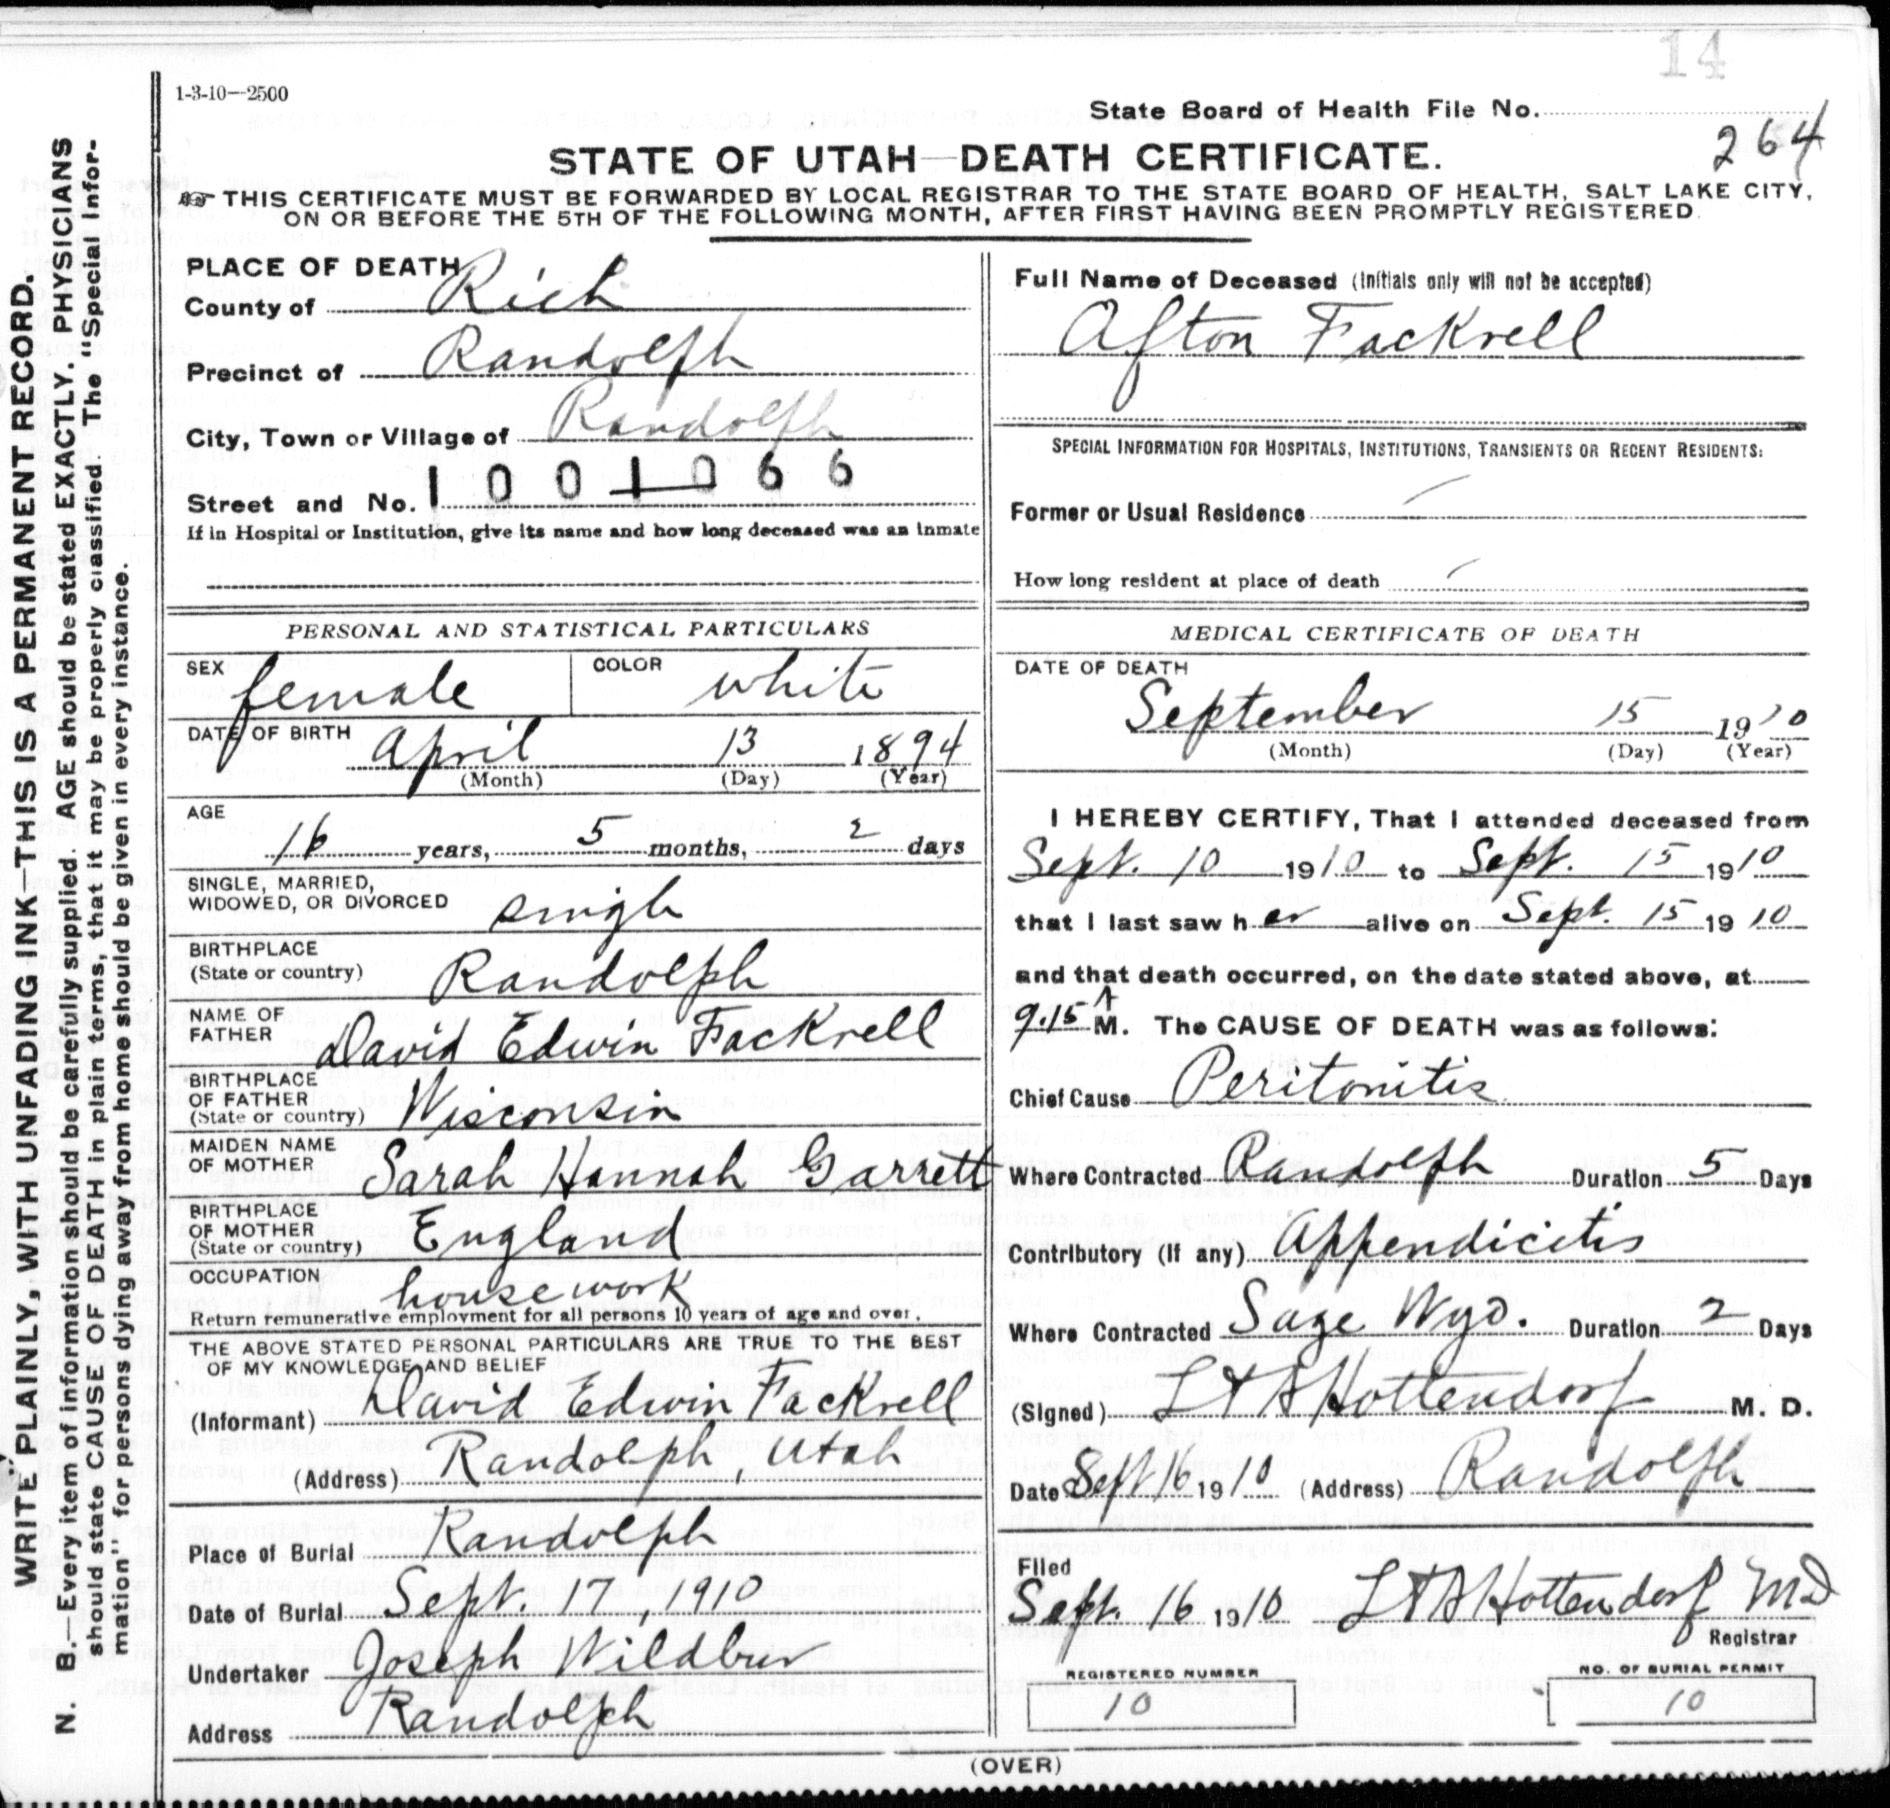 14
1-3-10—2500
State Board of Health File No.
264
STATE OF UTAH—DEATH CERTIFICATE.
THIS CERTIFICATE MUST BE FORWARDED BY LOCAL REGISTRAR TO THE STATE BOARD OF HEALTH, SALT LAKE CITY,
ON OR BEFORE THE 5TH OF THE FOLLOWING MONTH, AFTER FIRST HAVING BEEN PROMPTLY REGISTERED.
WRITE PLAINLY, WITH UNFADING INK—THIS IS A PERMANENT RECORD.
N. B.—Every item of information should be carefully supplied. AGE should be stated EXACTLY. PHYSICIANS
should state CAUSE OF DEATH in plain terms, that it may be properly classified. The "Special Infor-
mation" for persons dying away from home should be given in every instance.
PLACE OF DEATH
County of Rich
Precinct of Randolph
City, Town or Village of Randolph
Street and No. 1001066
If in Hospital or Institution, give its name and how long deceased was an inmate
PERSONAL AND STATISTICAL PARTICULARS
SEX female COLOR white
DATE OF BIRTH April 13 1894
(Month) (Day) (Year)
AGE
16 years, 5 months, 2 days
SINGLE, MARRIED,
WIDOWED, OR DIVORCED single
BIRTHPLACE
(State or country) Randolph
NAME OF
FATHER David Edwin Fackrell
BIRTHPLACE
OF FATHER
(State or country) Wisconsin
MAIDEN NAME
OF MOTHER Sarah Hannah Garrett
BIRTHPLACE
OF MOTHER
(State or country) England
OCCUPATION housework
Return remunerative employment for all persons 10 years of age and over.
THE ABOVE STATED PERSONAL PARTICULARS ARE TRUE TO THE BEST
OF MY KNOWLEDGE AND BELIEF
(Informant) David Edwin Fackrell
(Address) Randolph, Utah
Place of Burial Randolph
Date of Burial Sept. 17, 1910
Undertaker Joseph Wildbur
Address Randolph
Full Name of Deceased (Initials only will not be accepted)
Afton Fackrell
SPECIAL INFORMATION FOR HOSPITALS, INSTITUTIONS, TRANSIENTS OR RECENT RESIDENTS:
Former or Usual Residence
How long resident at place of death
MEDICAL CERTIFICATE OF DEATH
DATE OF DEATH
September 15 1910
(Month) (Day) (Year)
I HEREBY CERTIFY, That I attended deceased from
Sept. 10 1910 to Sept. 15 1910
that I last saw her alive on Sept. 15 1910
and that death occurred, on the date stated above, at
9.15 A M. The CAUSE OF DEATH was as follows:
Chief Cause Peritonitis
Where Contracted Randolph Duration 5 Days
Contributory (if any) Appendicitis
Where Contracted Sage Wyo. Duration 2 Days
(Signed) Hottendorf M. D.
Date Sept 16 1910 (Address) Randolph
Filed
Sept. 16 1910 Hottendorf MD
Registrar
REGISTERED NUMBER
10
NO. OF BURIAL PERMIT
10
(OVER)